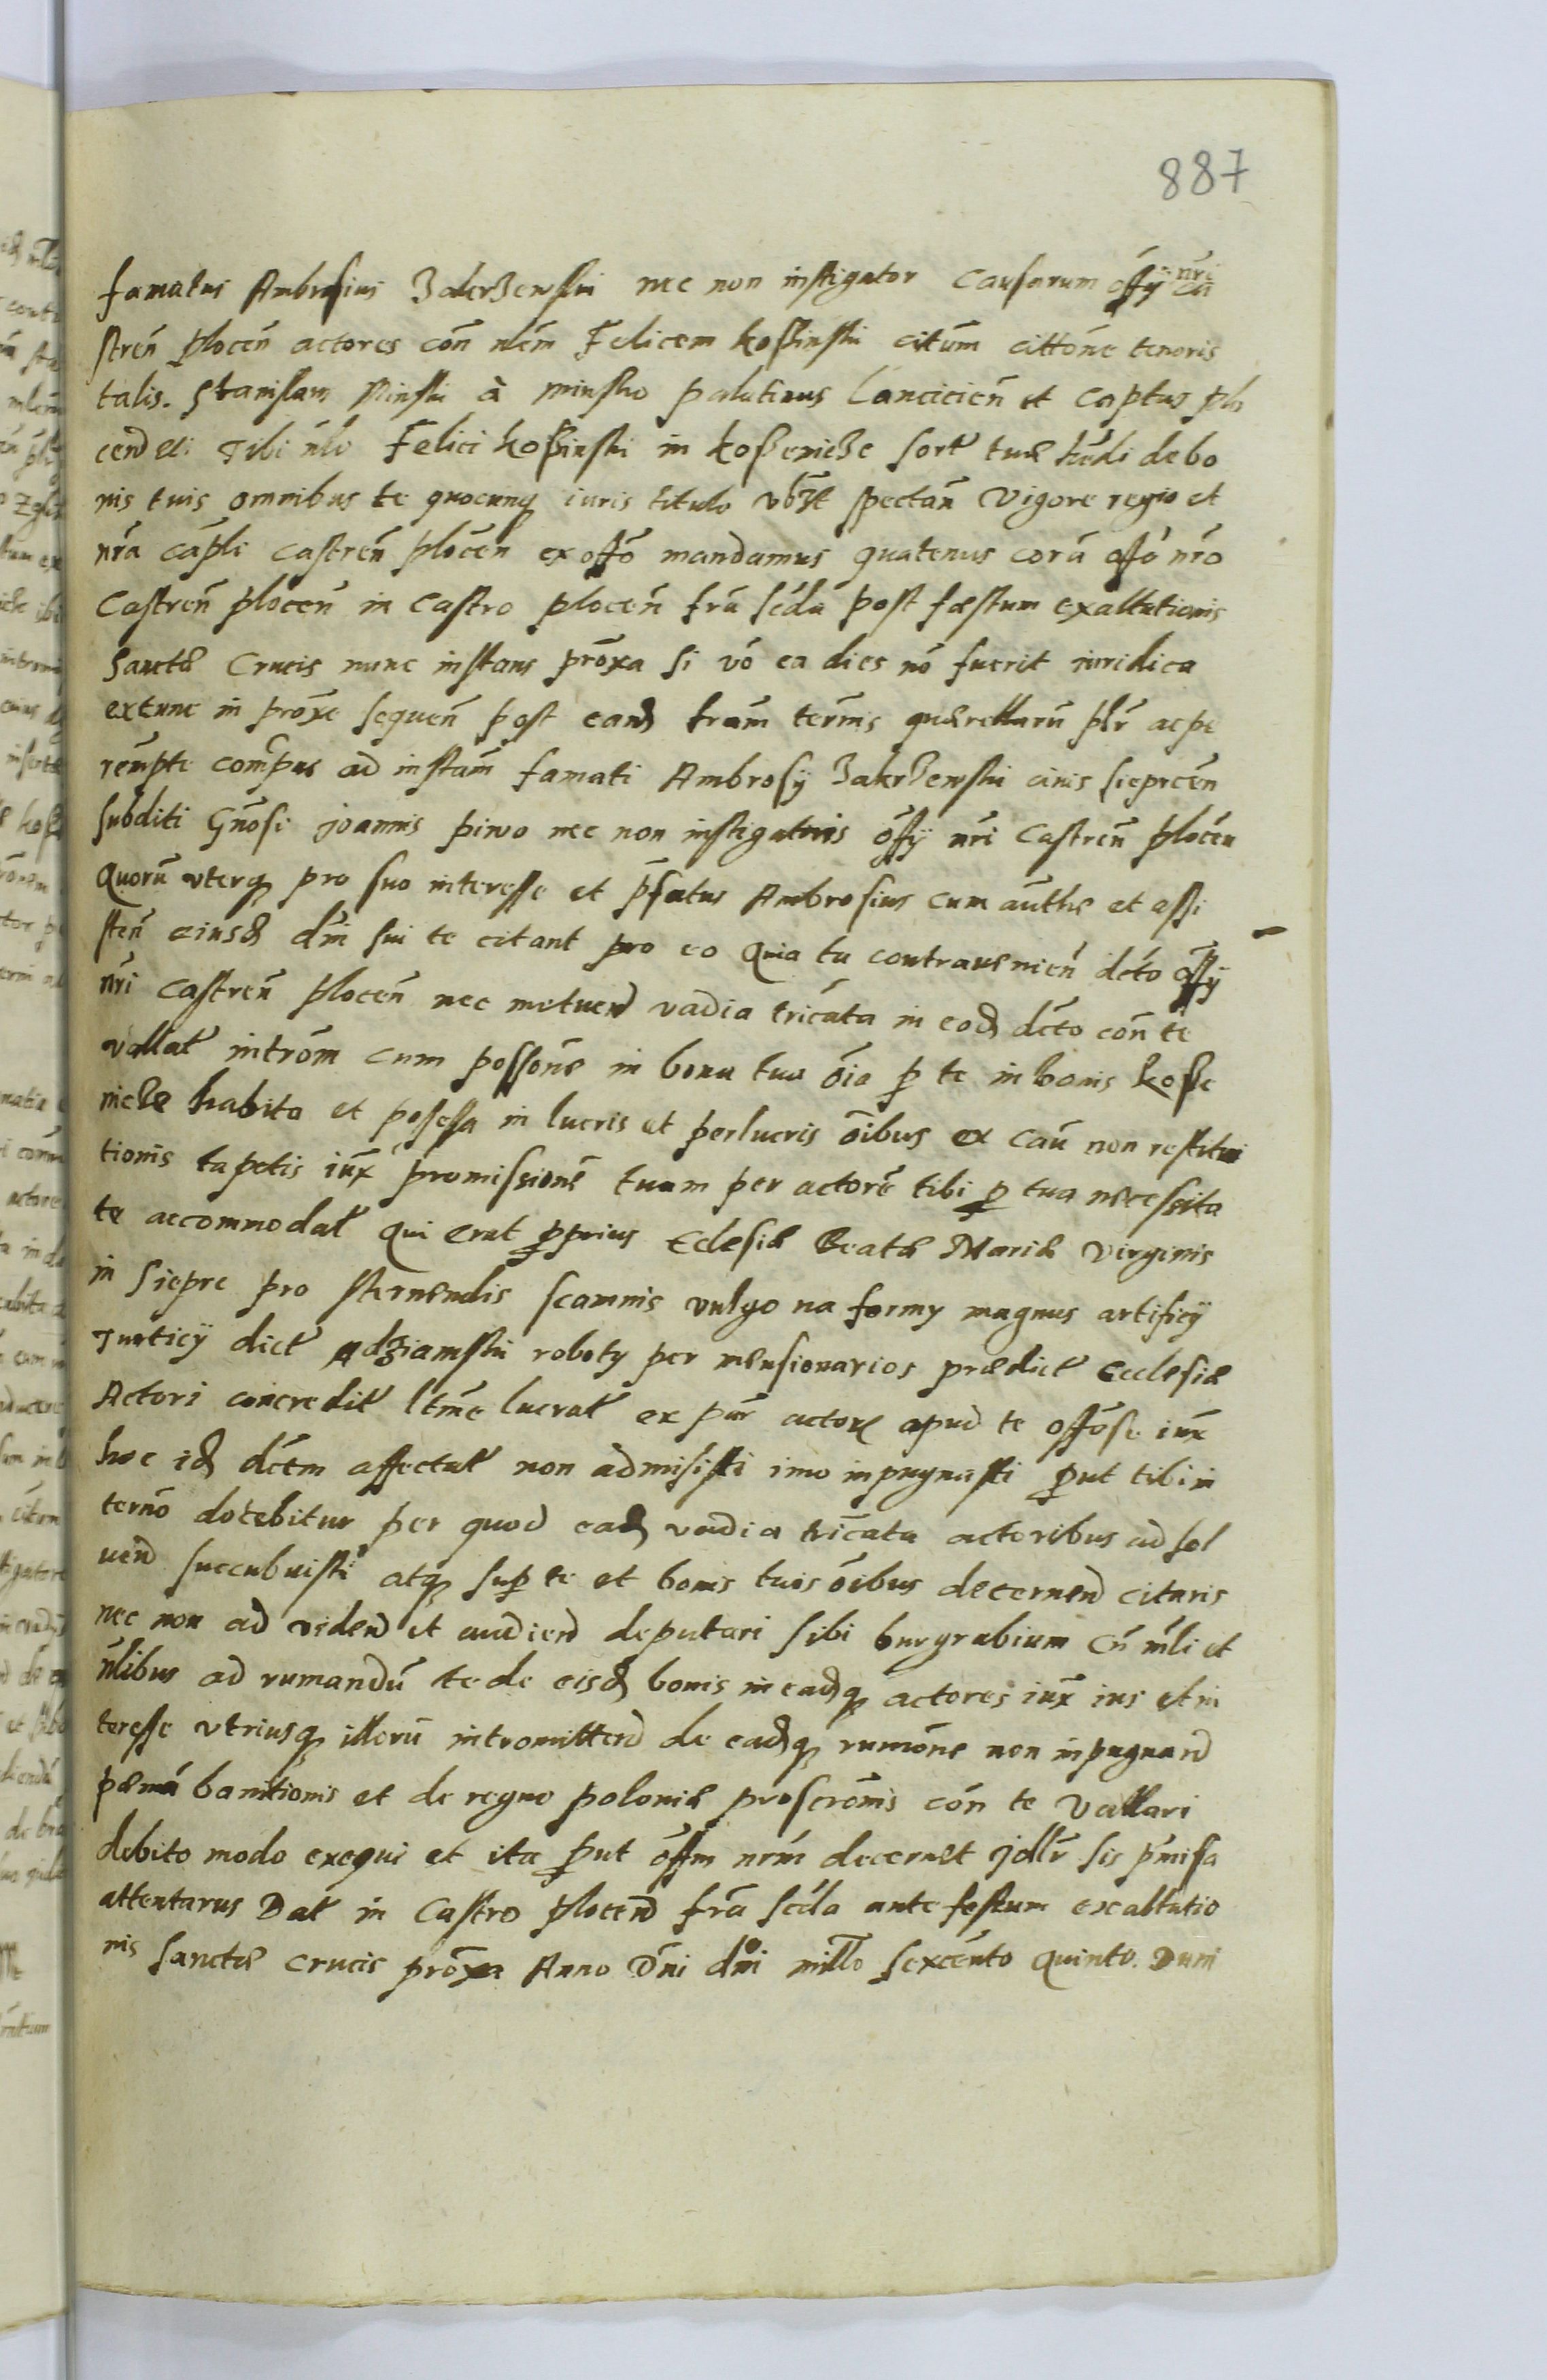 887
famatus Ambrosius Zakrzewski nec non instigator causarum offy nri ca
stren plocen actores con nlem Felicem kossinski citum cittone tenoris
talis. Stanislaus Minski à minsko palatinus Lancicien et Captus plo
cen etc Tibi nlo Felici kossinski in kosseniche sort tuæ hædi de bo
nis tuis omnibus te quocunq iuris titulo vbilt spectan Vigore regio et
nra capli castren plocen ex offo mandamus quatenus corã offo nro
Castren plocen in castro plocen fra scda post fæstum exaltationis
Sanctæ Crucis nunc instans proxa si vo ea dies nõ fuerit iuridica
extunc in proxe sequen post eand fram termis quærellarũ plr ac pe
rempte compas ad instam famati Ambrosy Zakrzewski civis sieprcen
subditi Gnosi joannis piwo nec non instigatoris offy nri Castren plocen
Quorũ vterq pro suo interesse et psatus Ambrosius cum authe et assi
sten eiusd dni sui te citant pro eo Quia tu contravenien dcto offy
nri castren plocen nec metuen vadia tricata in eod dcto con te
vallat introm cum possone in bona tua oia p te in bonis kosse
niche habita et possessa in lucris et perlucris oibus ex cau non restitu
tionis tapetis iux promissione tuam per actore tibi p tua necessita
te accommodat qui erat pprius Eclesiæ Beatæ Mariæ Virginis
in Siepre pro sternendis scamnis vulgo na formy magnus artificy
Turticy dict adziamski roboty per mensionarios prædict Ecclesiæ
Actori concredit ltme lucrat ex par actor apud te offose iux
hoc id dctm affectat non admisisti imo inpugnasti put tibi in
terno docebitur per quod ead vadia tricata actoribus ad sol
uend succubuisti atq sup te et bonis tuis oibus decernend citaris
nec non ad videnđ et audiend deputari sibi burgrabium cũ mli et
nlibus ad rumandũ te de eisd bonis in eadq actores iux ius et in
teresse vtriusq illorũ intromittend de eadq rumone non inpugnand
pæna banitionis et de regno poloniæ proscronis con te vallari
debito modo exequi et ita put offm nrm decernet jdlr sis pmissa
attentarus Dat in Castro plocend fra scda ante festum exaltatio
nis sanctæ crucis proxa Anno Dni dni millo sexcento quinto. Dum